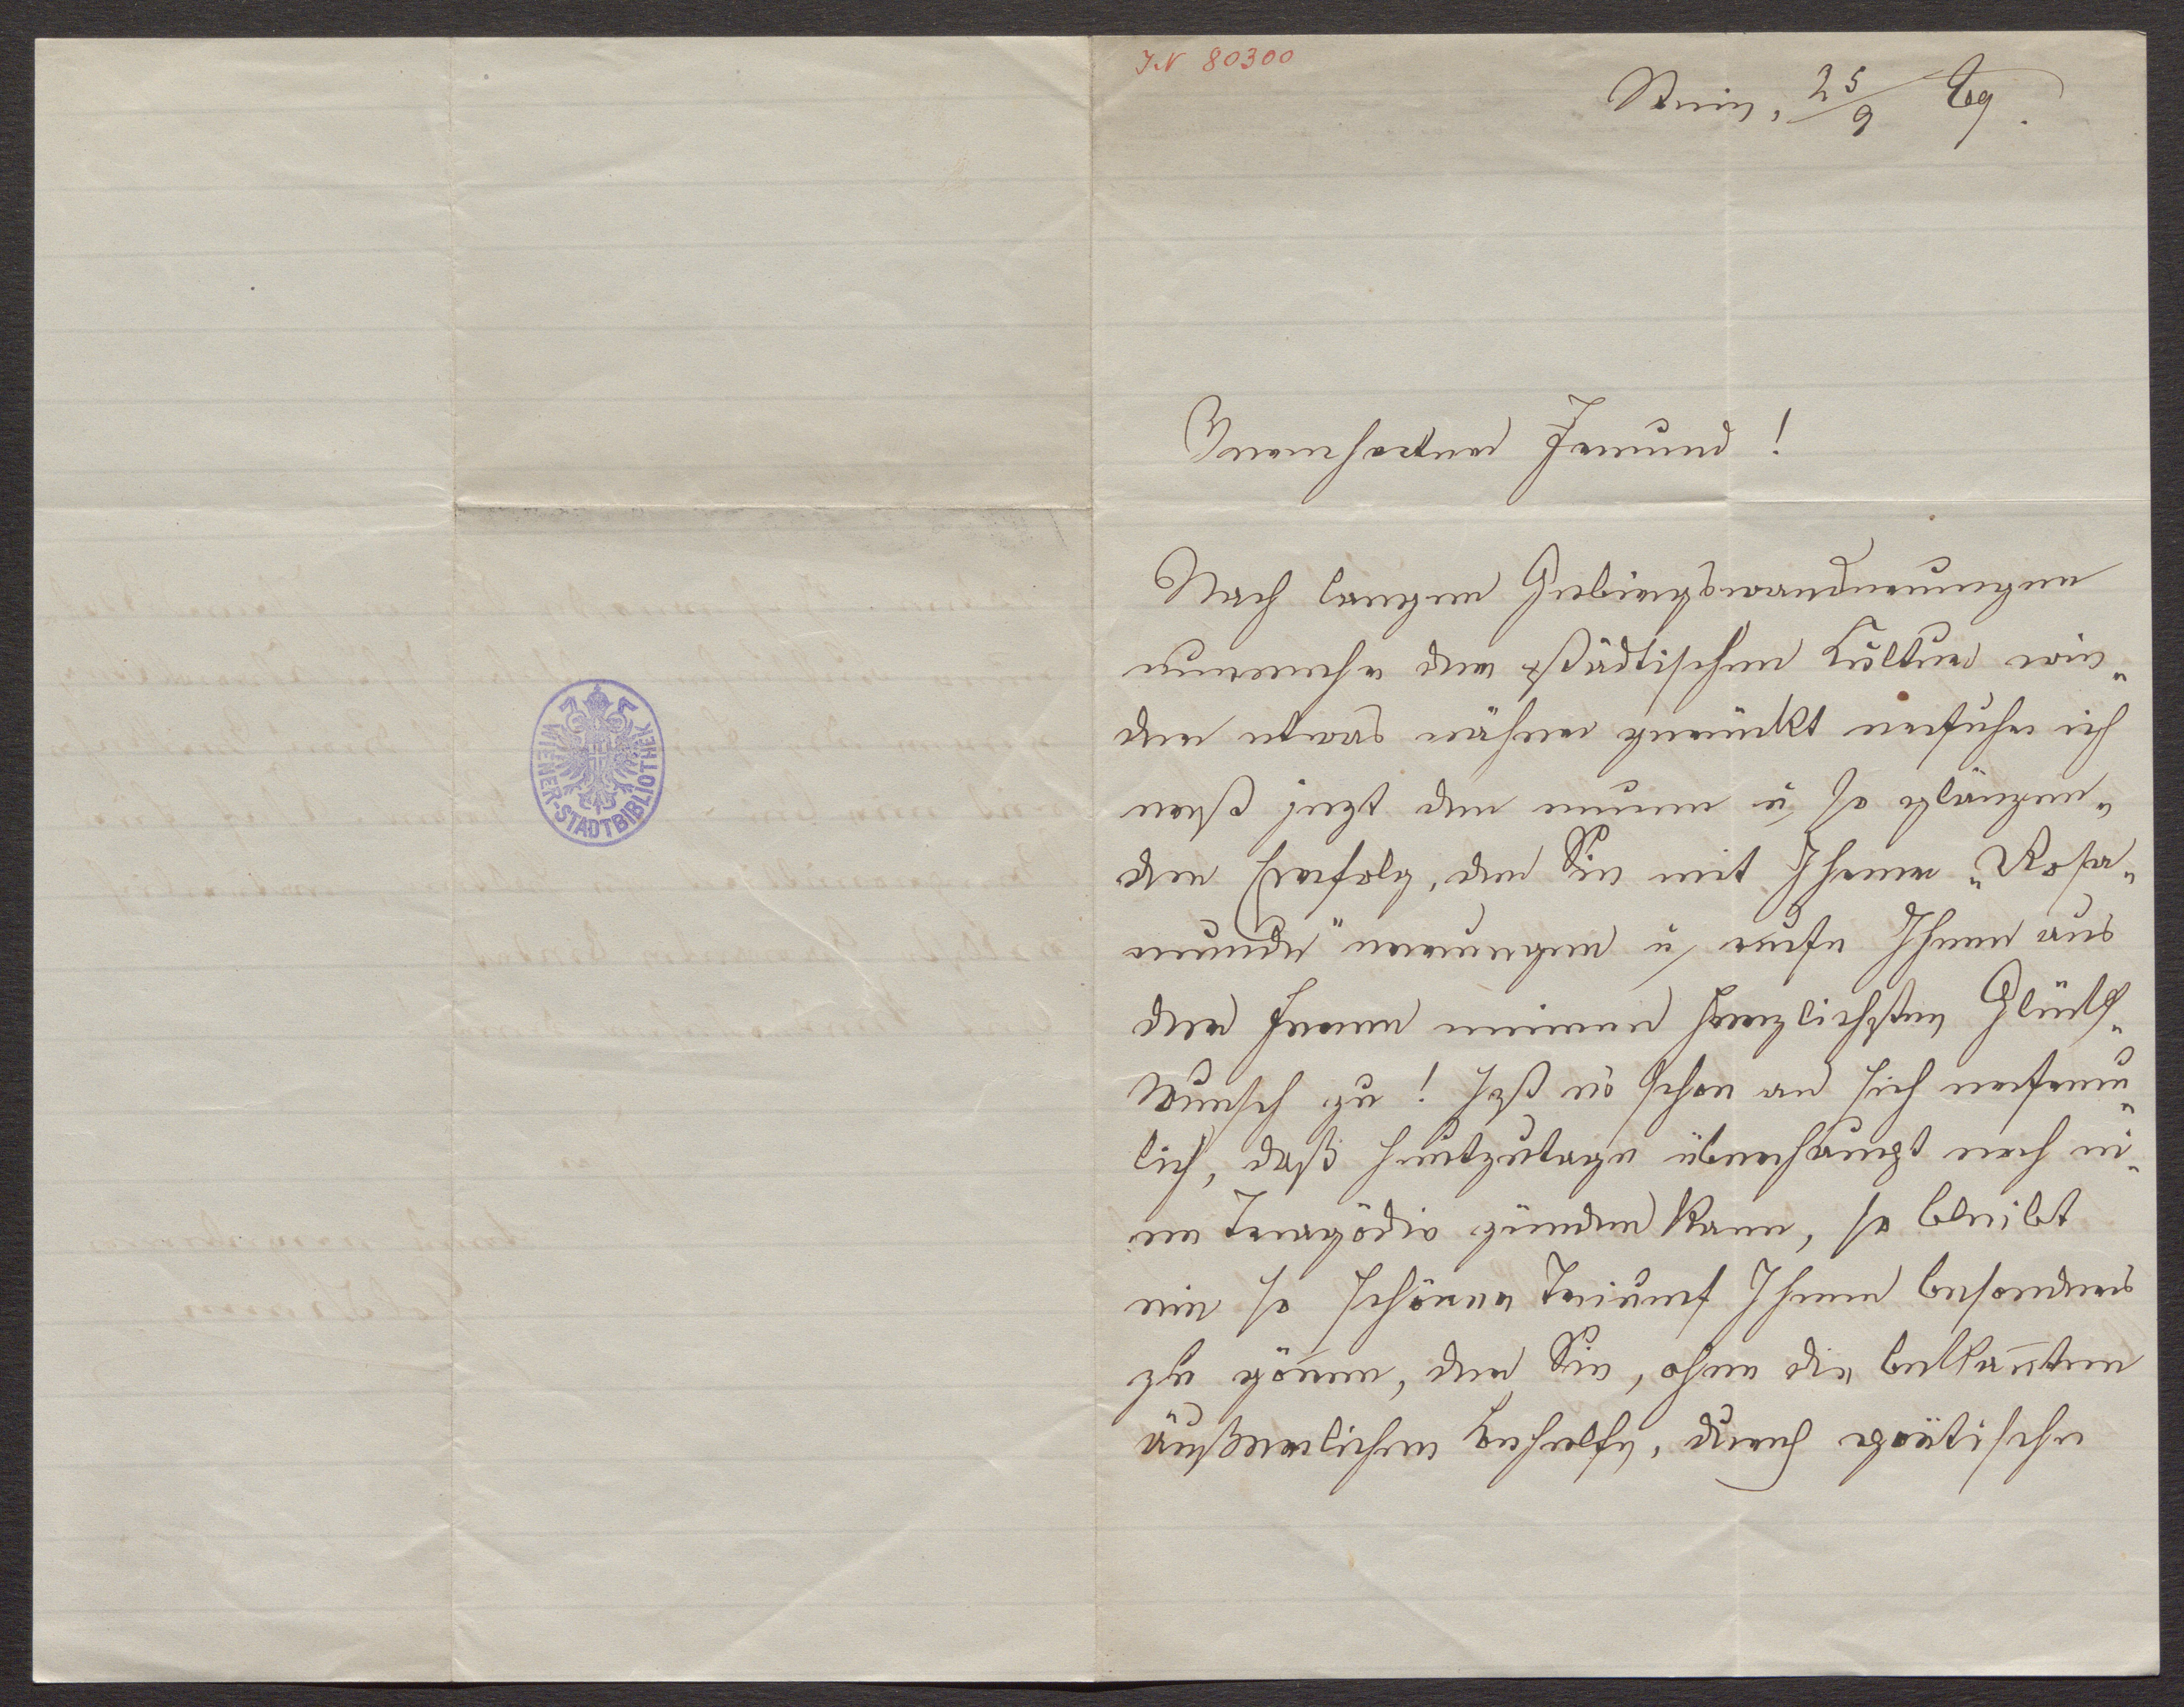 IN 80300
Stein, 25/9 69.
Verehrter Freund!
Nach langen Gebirgswanderungen
nunmehr der städtischen Kultur wie„
der etwas näher gerückt erfuhr ich
erst jezt den neuen u so glänzen„
den Erfolg, den Sie mit Ihrer „Rosa„
munde" errungen u rufe Ihnen aus
der Ferne meinen herzlichsten Glück„
wunsch zu! Ist es schon an sich erfreu„
lich, daß heutzutage überhaupt noch ei„
ne Tragödie zünden kann, so bleibt
ein so schöner Triumf Ihnen besonders
zu gönnen, den Sie, ohne die bekan̄ten
äußerlichen Behelfe, durch poëtische
WIENER-STADTBIBLIOTHEK